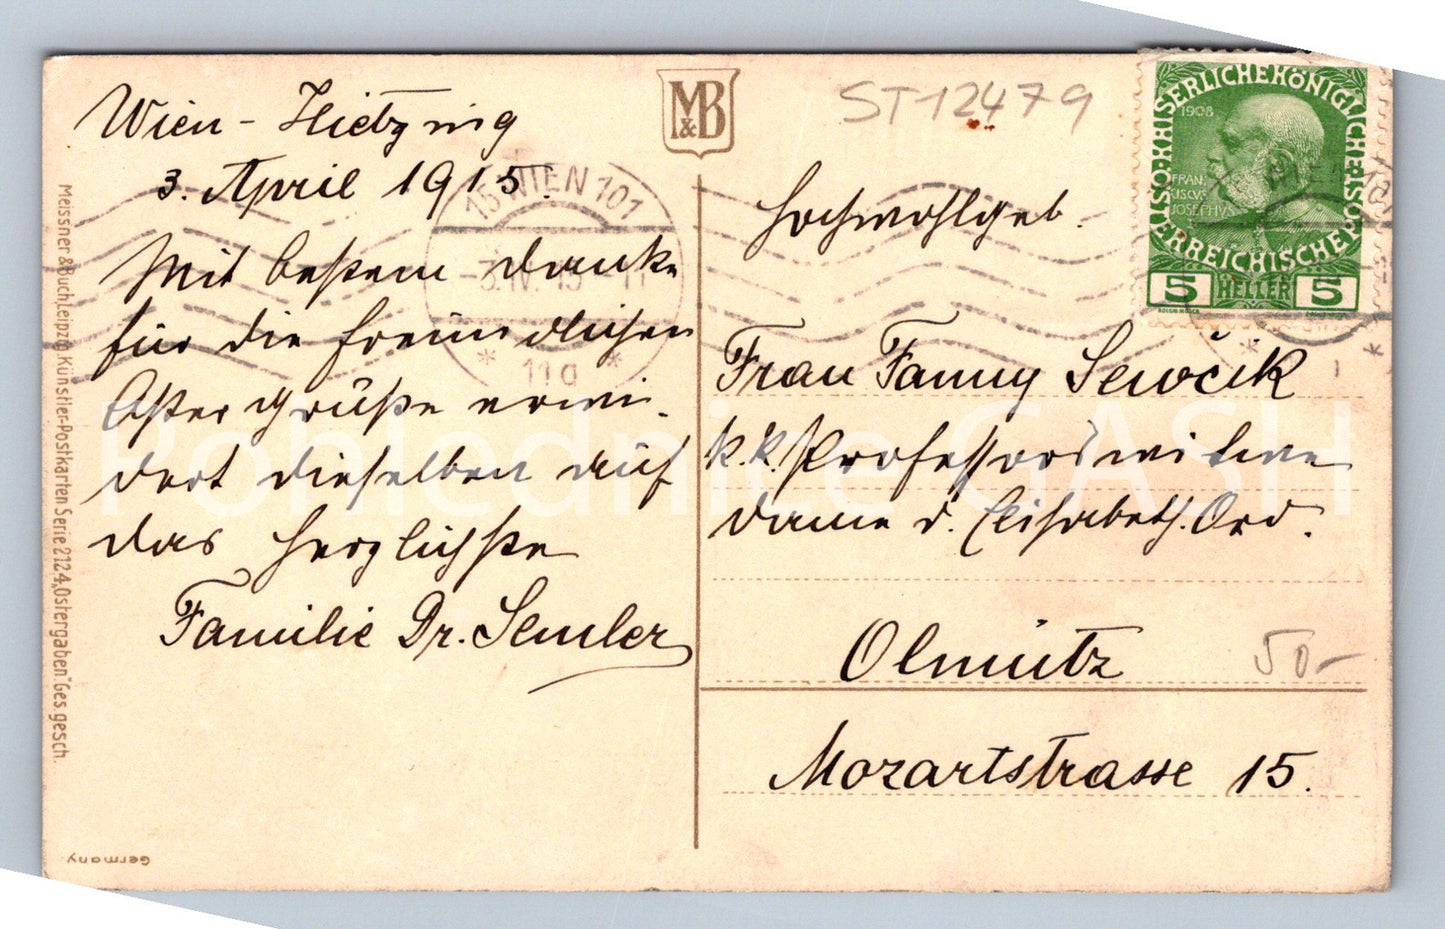 Wien - Hietzing
3. April 1915.
Mit bestem Danke
für die freundlichen
Ostergrüße erwi-
dert dieselben auf
das herzlichste
Familie Dr. Semler
M&B
ST12479
Hochwohlgeb.
Frau Fanny Sewčik
k. k. Professorswitwe
Dame d. Elisabeth. Ord.
Olmütz
50-
Mozartstrasse 15.
KAISERLICHEKÖNIGLICHE
ÖSTERREICHISCHE
1908
FRAN-
CISCVS
JOSEPHVS
5 HELLER 5
15 WIEN 101
3.IV.15-11
* 11g *
Meissner & Buch, Leipzig. Künstler-Postkarten Serie 2124, Ostergaben" Ges. gesch.
Germany
Pohlednice GASH